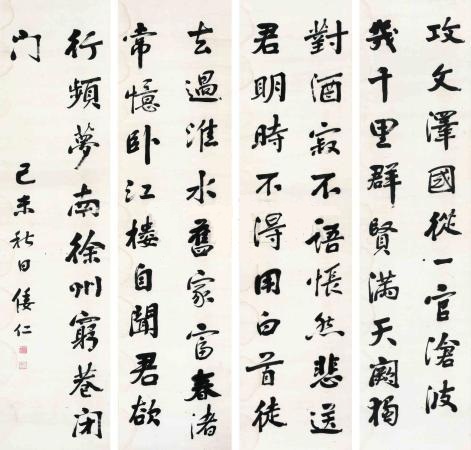 攻文澤國從一官滄波
幾千里群賢滿天闕獨
對酒寂不語悵然悲送
君明時不得用白首徒
去過淮水舊家富春渚
常憶臥江樓自聞君欲
行頻夢南徐州窮巷閉
门
己未秋日倭仁